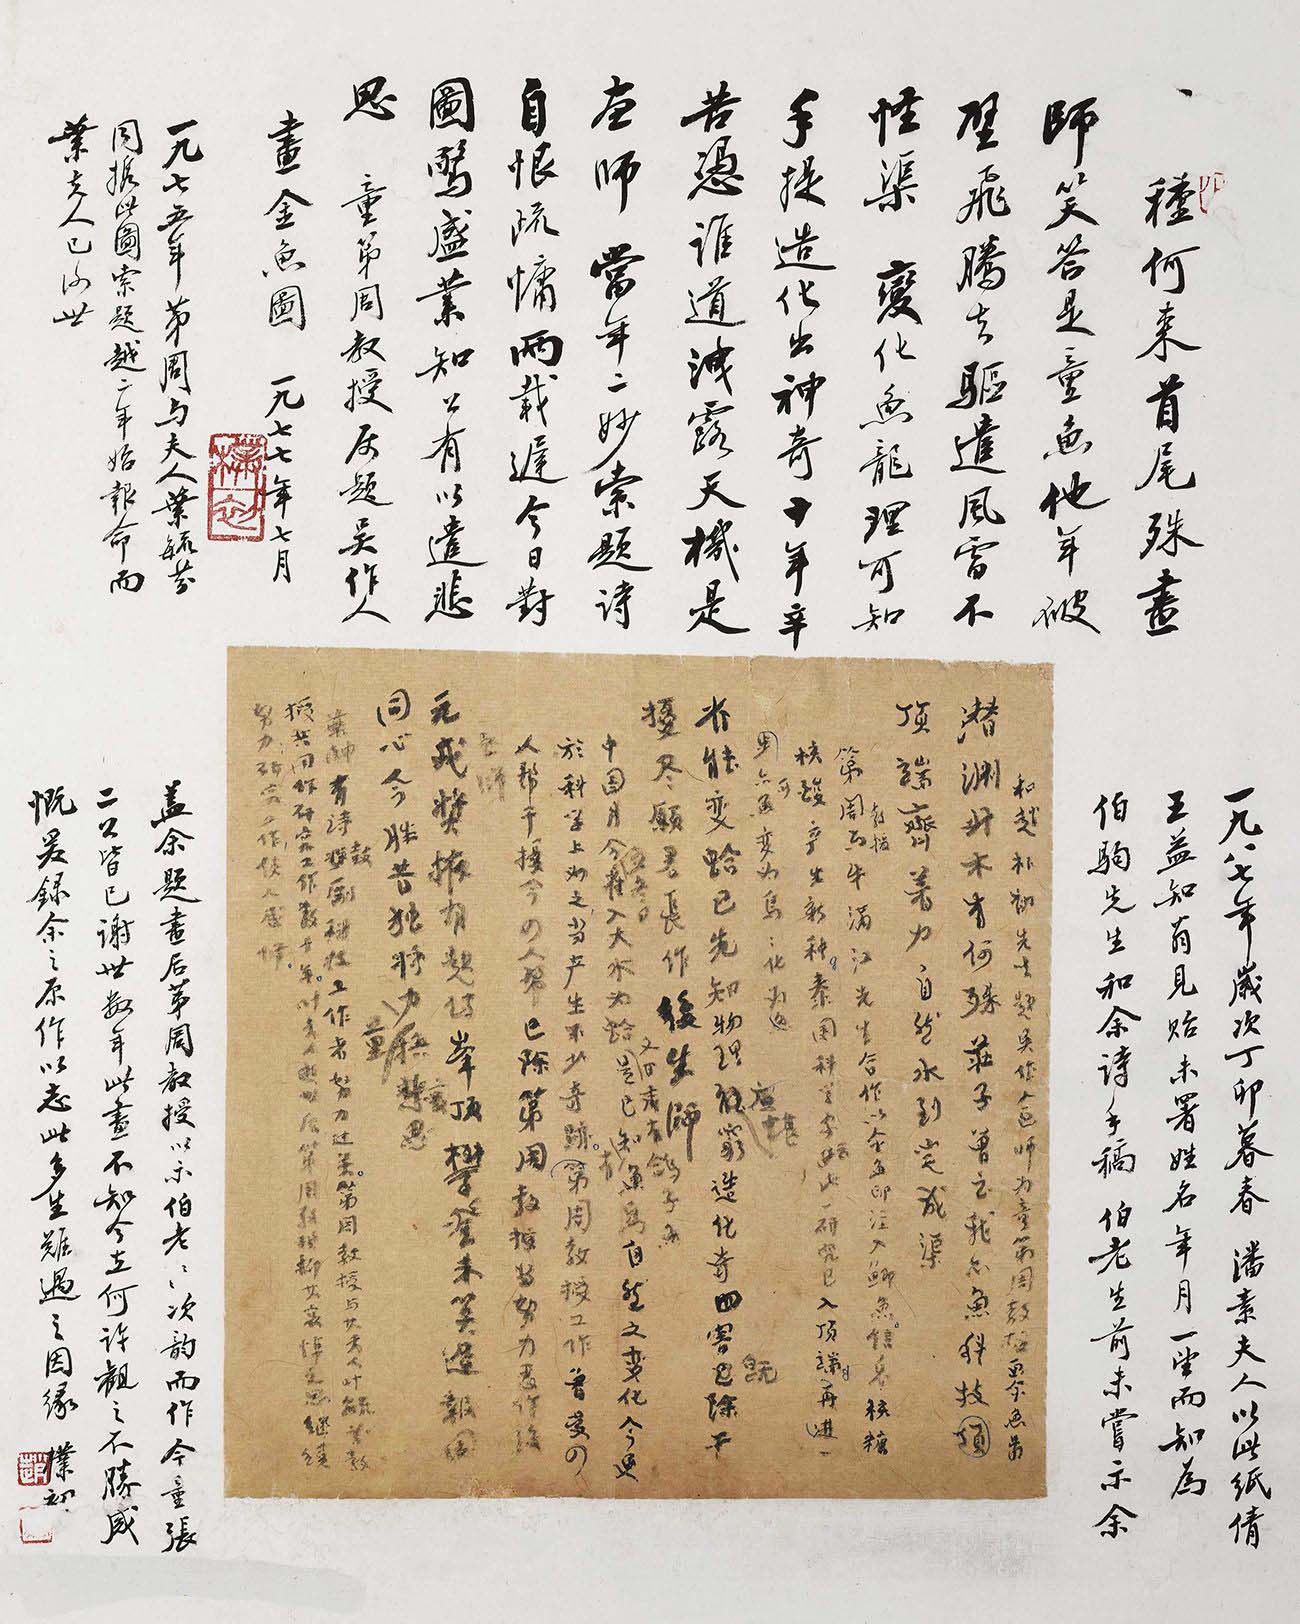 一種何來首尾殊畫
師笑答是童魚他年破
壁飛騰去驅遣風雷不
怪渠 變化魚龍理可知
手提造化出神奇十年辛
苦憑誰道洩露天機是
師 當年二妙索題詩
自恨疏慵兩載遲今日對
圖驚盛業知公有以遣悲
思 童第周教授屬題吳作人
畫金魚圖 一九七七年七月
樸初
一九七五年第周与夫人葉毓芬
同持此圖索題越二年始報命而
葉夫人已謝世
一九八七年歲次丁卯暮春 潘素夫人以此紙倩
王益知翁見貽未署姓名年月一望而知為
伯駒先生和余詩手稿 伯老生前未嘗示余
和趙朴初先生題吳作人畫師为童第周教授畫金魚
潜渊升木有何殊莊子曾言我忘魚科技
頂端齊着力自然水到竟成渠
第周教授与牛滿江先生合作以金魚卵注入鯽魚信息核糖
核酸可产生新种。
皆能變蛤已先知物理能窮造化奇四害已除干
擾尽願君長作後生師
中国月令雀入大水为蛤是已知魚鳥自然之变化今更
於科学上为之当产生不少奇跡。第周教授工作曾受四
人帮干擾今四人帮已除第周教授当努力
同心今勝昔
葉帅有诗鼓励科技工作者努力过关。第周教授与其夫人叶毓芬教
授共同作研究工作数十年。
努力研究工作,使人感佩。
蓋余題畫后第周教授以示伯老〻次韵而作今童張
二公皆已謝世数年此畫不知今在何許覩之不勝感
慨爰録余之原作以志此多生難遇之因緣 樸初
趙